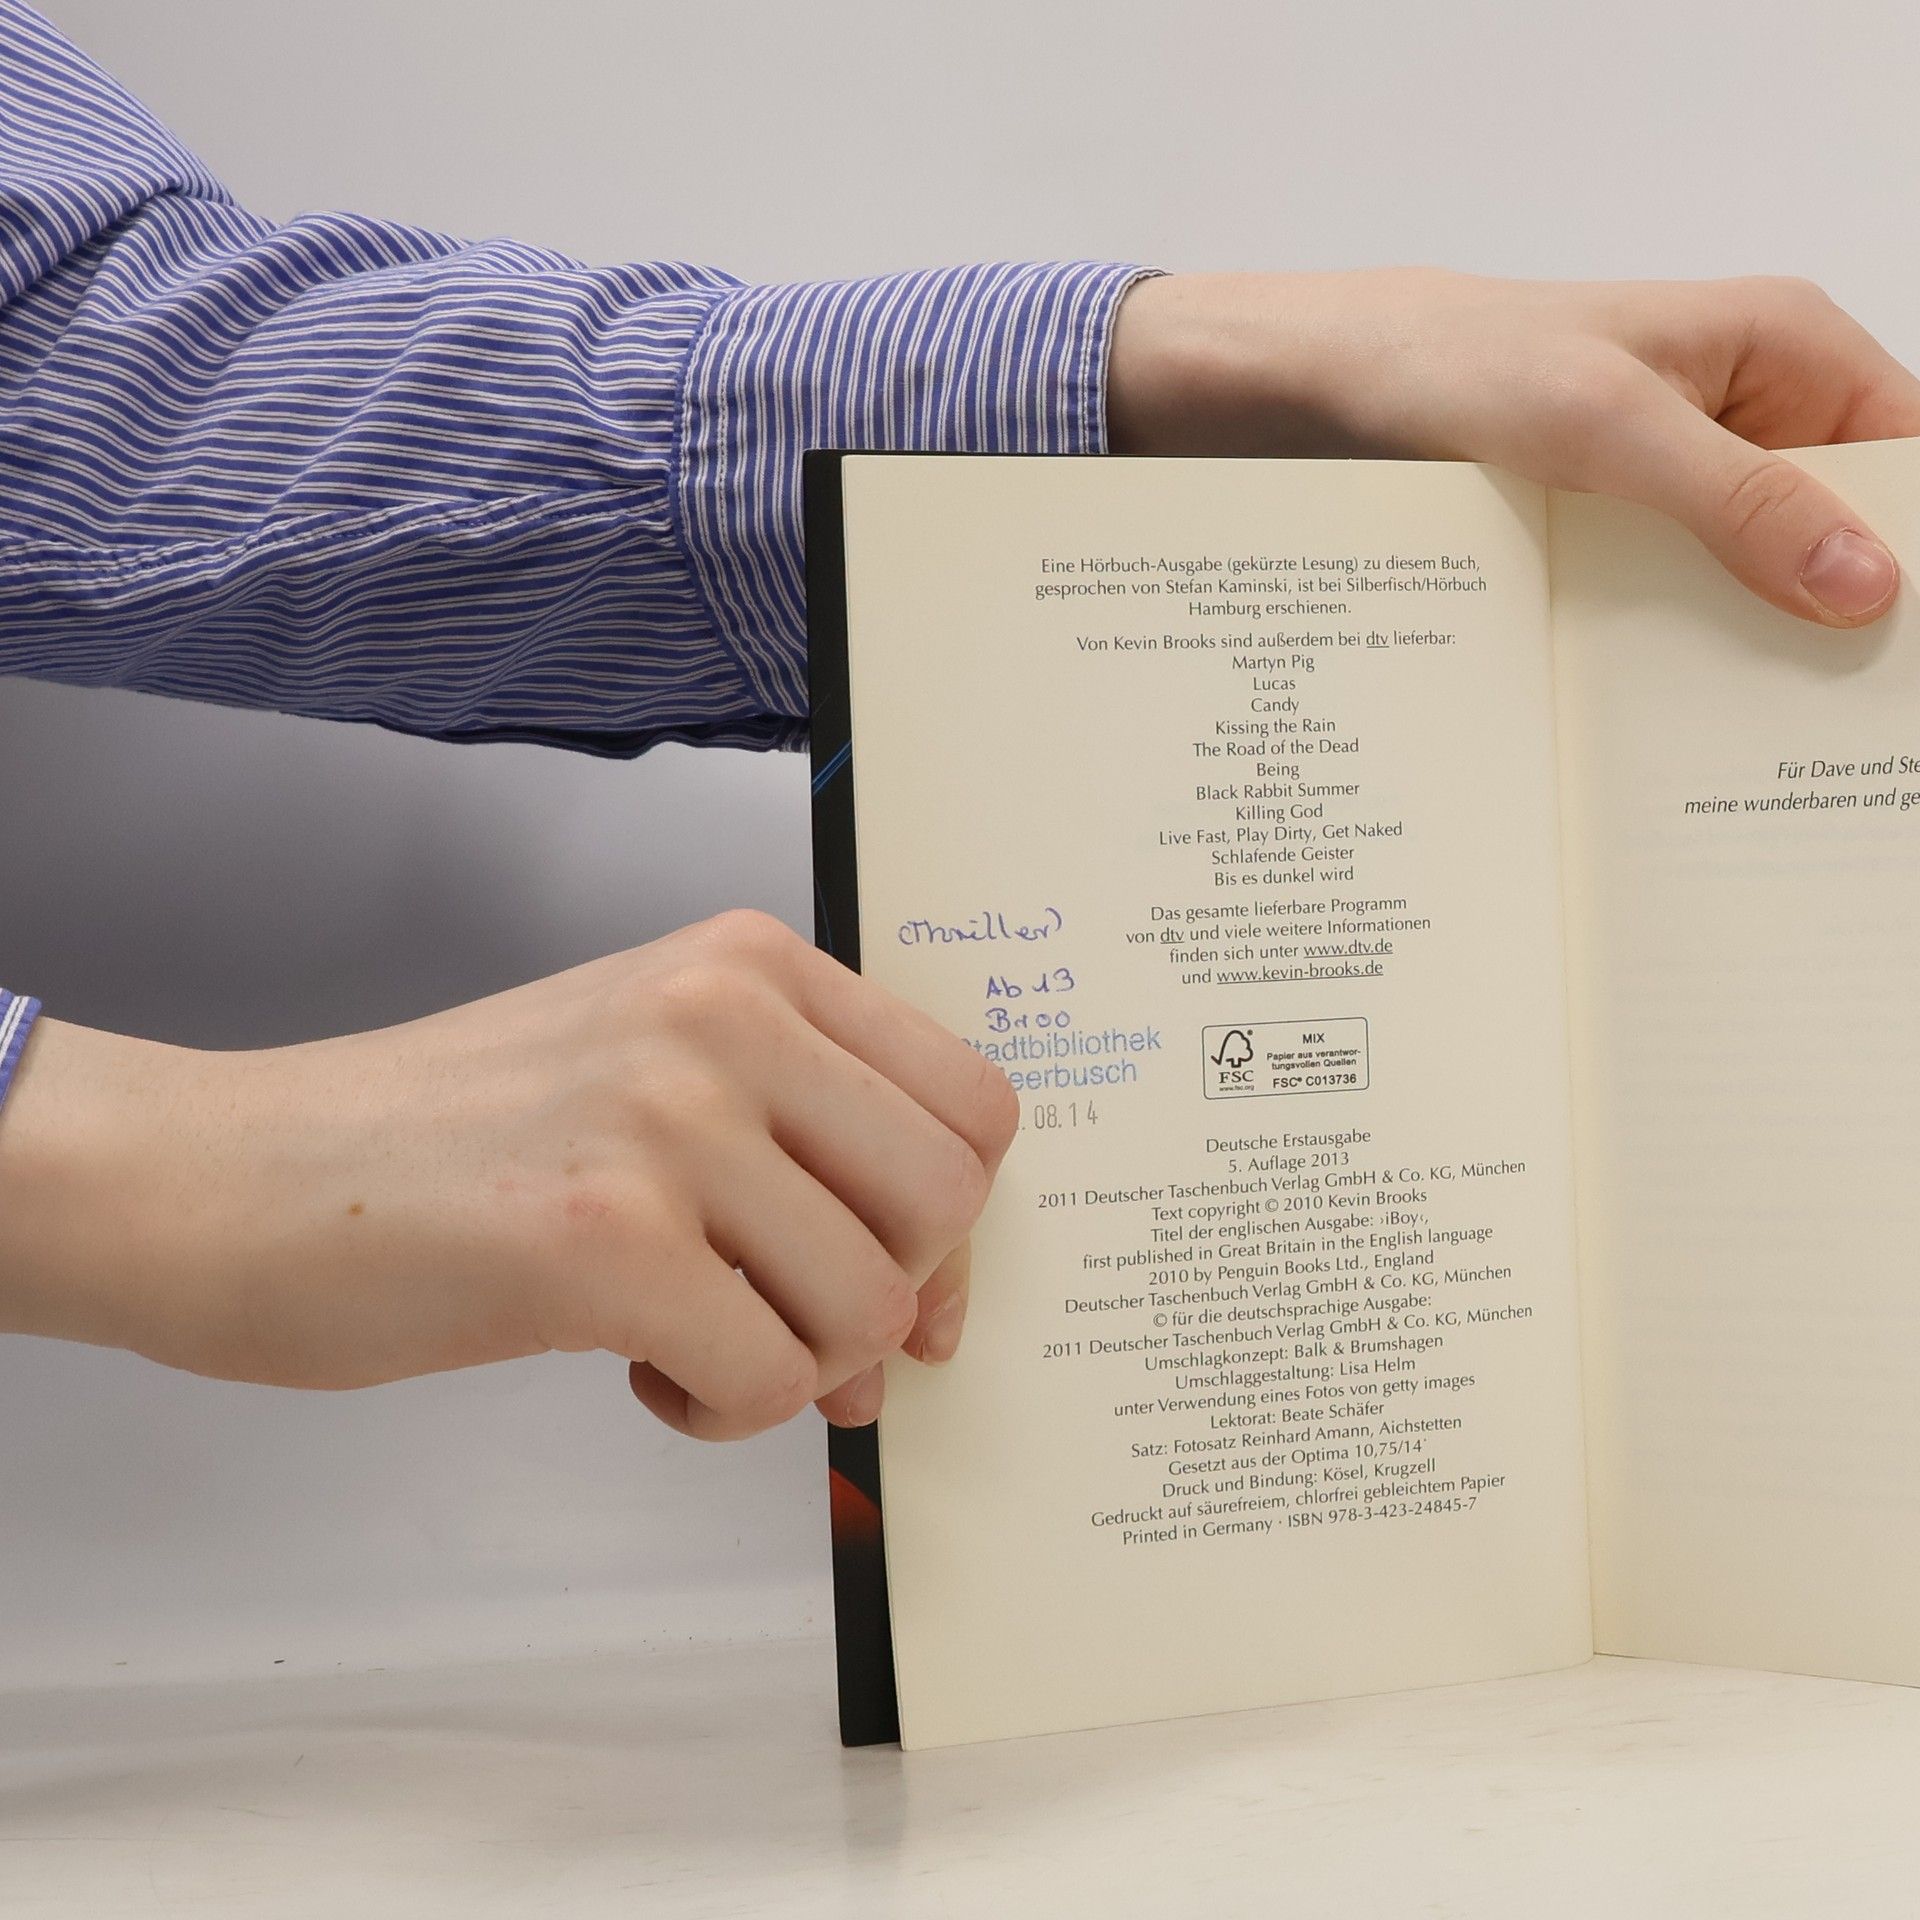 Eine Hörbuch-Ausgabe (gekürzte Lesung) zu diesem Buch,
gesprochen von Stefan Kaminski, ist bei Silberfisch/Hörbuch
Hamburg erschienen.
Von Kevin Brooks sind außerdem bei dtv lieferbar:
Martyn Pig
Lucas
Candy
Kissing the Rain
The Road of the Dead
Being
Black Rabbit Summer
Killing God
Live Fast, Play Dirty, Get Naked
Schlafende Geister
Bis es dunkel wird
Das gesamte lieferbare Programm
von dtv und viele weitere Informationen
finden sich unter www.dtv.de
und www.kevin-brooks.de
(Thriller)
Ab 13
Broo
tadtbibliothek
eerbusch
. 08. 1 4
FSC
www.fsc.org
MIX
Papier aus verantwor-
tungsvollen Quellen
FSC® C013736
Deutsche Erstausgabe
5. Auflage 2013
2011 Deutscher Taschenbuch Verlag GmbH & Co. KG, München
Text copyright © 2010 Kevin Brooks
Titel der englischen Ausgabe: ›iBoy‹,
first published in Great Britain in the English language
2010 by Penguin Books Ltd., England
Deutscher Taschenbuch Verlag GmbH & Co. KG, München
© für die deutschsprachige Ausgabe:
2011 Deutscher Taschenbuch Verlag GmbH & Co. KG, München
Umschlagkonzept: Balk & Brumshagen
Umschlaggestaltung: Lisa Helm
unter Verwendung eines Fotos von getty images
Lektorat: Beate Schäfer
Satz: Fotosatz Reinhard Amann, Aichstetten
Gesetzt aus der Optima 10,75/14˙
Druck und Bindung: Kösel, Krugzell
Gedruckt auf säurefreiem, chlorfrei gebleichtem Papier
Printed in Germany · ISBN 978-3-423-24845-7
Für Dave und Ste
meine wunderbaren und ge